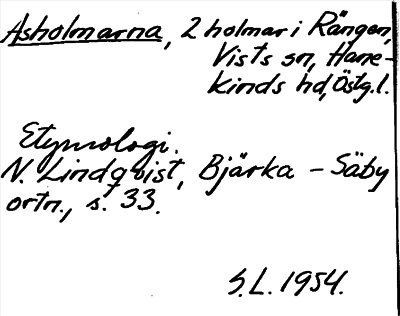 Asholmarna, 2 holmar i Rängen,
Vists sn, Hane-
kinds hd, Östg. l.
Etymologi.
N. Lindqvist, Bjärka - Säby
ortn., s. 33.
S.L. 1954.